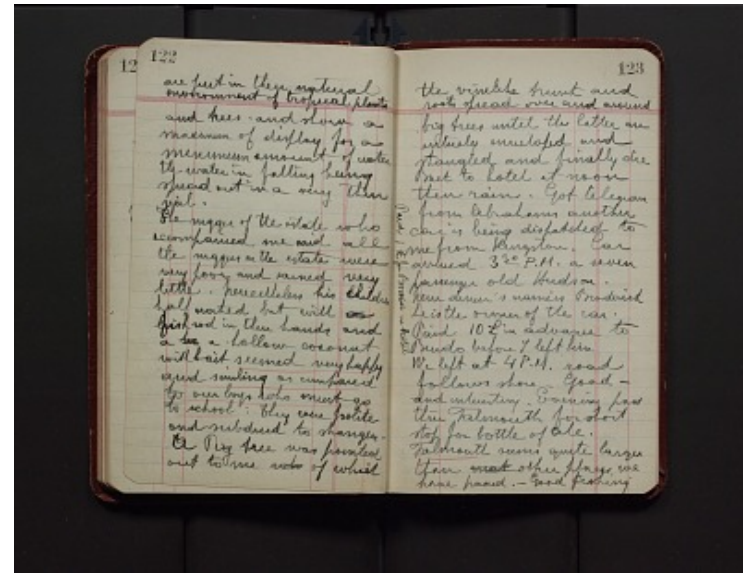 122
are put in their natural
environment of tropical plants
and trees and show a
maximum of display for a
minimum amount of water
the water in falling being
spread out in a very thin
veil.
The nigger of the estate who
accompanied me said all
the niggers on the estate were
very poor and earned very
little. Nevertheless his children
half naked but with
fish rod in their hands and
a hollow coconut
with bait seemed very happy
and smiling as compared
to our boys who must go
to school. They were polite
and subdued to strangers.
A Fig tree was pointed
out to me of which
123
the vinelike trunk and
roots spread over and around
big trees until the latter are
entirely enveloped and
strangled and finally die
Back to hotel at noon
then rain. Got telegram
from Abrahams another
car is being dispatched to
me from Kingston. Car
arrived 3 30 P.M. a seven
passenger old Hudson.
New driver's name is Broderick
he is the owner of the car.
Paid 10£ in advance to
before I left him
We left at 4 P.M. road
follows shore. Good -
and interesting. Evening pass
thru Falmouth for short
stop for bottle of ale.
Falmouth seems quite larger
than most other places we
have passed. - Good fishing